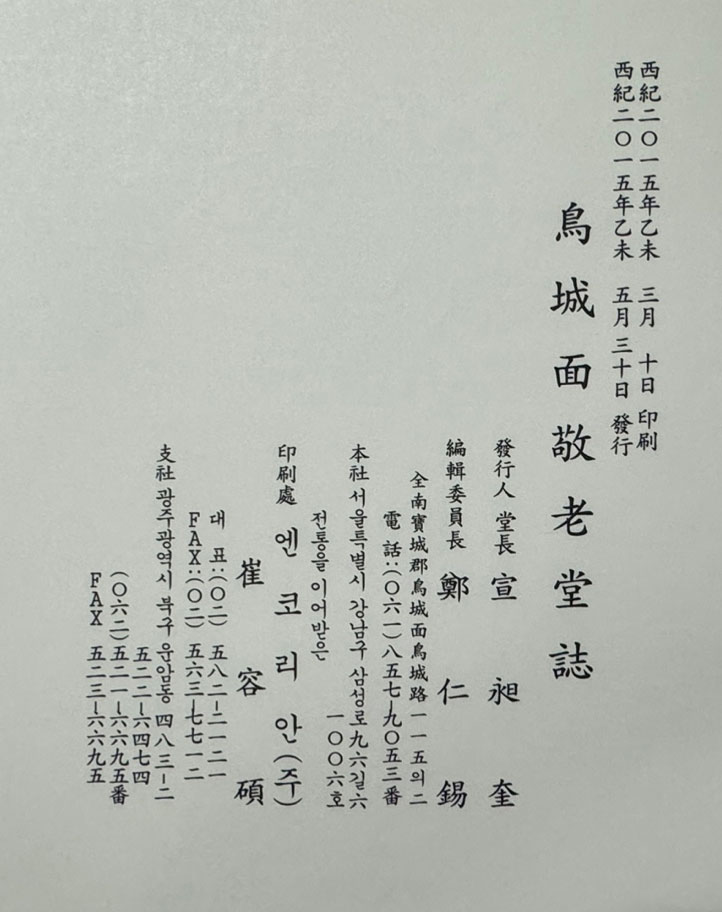 西紀二〇一五年乙未 三月 十日 印刷
西紀二〇一五年乙未 五月 三十日 發行
鳥城面敬老堂誌
發行人 堂長 宣昶奎
編輯委員長 鄭仁錫
全南寶城郡鳥城面鳥城路一一五의二
電話:(〇六一)八五七-九〇五三番
本社 서울특별시 강남구 삼성로九六길六
一〇〇六호
전통을 이어받은
印刷處 엔코리안(주)
崔容碩
대 표:(〇二) 五八二-二一二一
FAX:(〇二) 五六三-七七一二
支社 광주광역시 북구 운암동 四八三-二
五二二-六四七四
(〇六二)五二一-六六九五番
FAX 五二三-六六九五